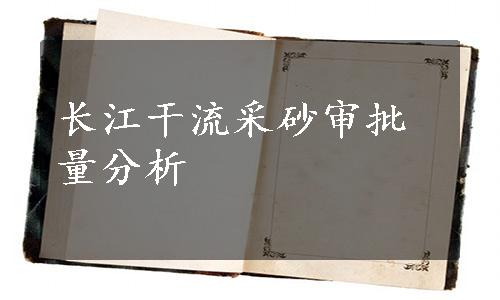 长江干流采砂审批
量分析